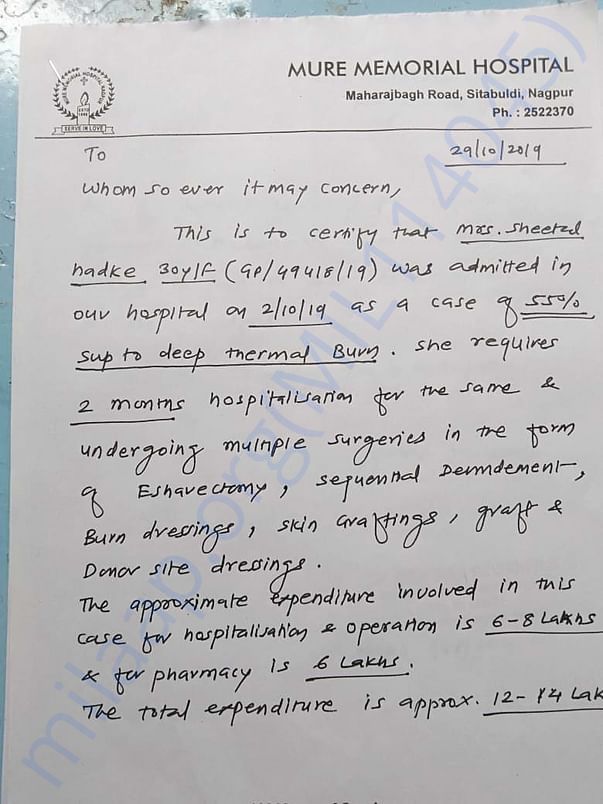 MURE MEMORIAL HOSPITAL
Maharajbagh Road, Sitabuldi, Nagpur
Ph. : 2522370
MURE MEMORIAL HOSPITAL NAGPUR
ESTD
SERVE IN LOVE
To
29/10/2019
Whom so ever it may concern,
This is to certify that Mrs. Sheetal
hadke 30y/F (GP/49418/19) was admitted in
our hospital on 2/10/19 as a case of 55%
sup to deep thermal Burn. She requires
2 months hospitalisation for the same &
undergoing multiple surgeries in the form
of Eshavectomy, sequential
Burn dressings, skin Graftings, graft &
Donor site dressings.
The approximate expenditure involved in this
case for hospitalisation & operation is 6-8 Lakhs
& for pharmacy is 6 Lakhs.
The total expenditure is approx. 12-14 Lak
milaap.org(MIL114045)